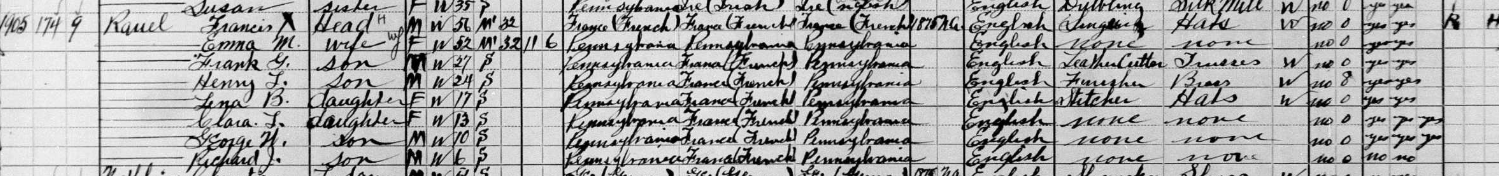 Susan sister F W 35 S Pennsylvania Ire (Irish) Ire English English Silk Mill W no 0 yes yes
1905 174 9 Rauel Francis X Head H M W 56 M1 32 France (French) France (French) France (French) 1875 Na English Hats W no 0 yes yes R H
Emma M. wife F W 52 M1 32 11 6 Pennsylvania Pennsylvania Pennsylvania English none none no 0 yes yes
Frank G. son M W 27 S Pennsylvania France (French) Pennsylvania English Leather Cutter Trusses W no 0 yes yes
Henry L. son M W 24 S Pennsylvania France (French) Pennsylvania English Finisher Brass W no 8 yes yes
Lena B. daughter F W 17 S Pennsylvania France (French) Pennsylvania English Stitcher Hats W no 0 yes yes
Clara L. daughter F W 13 S Pennsylvania France (French) Pennsylvania English none none no 0 yes yes yes
George N. son M W 10 S Pennsylvania France (French) Pennsylvania English none none no 0 yes yes yes
Richard J. son M W 6 S Pennsylvania France (French) Pennsylvania English none none no 0 no no